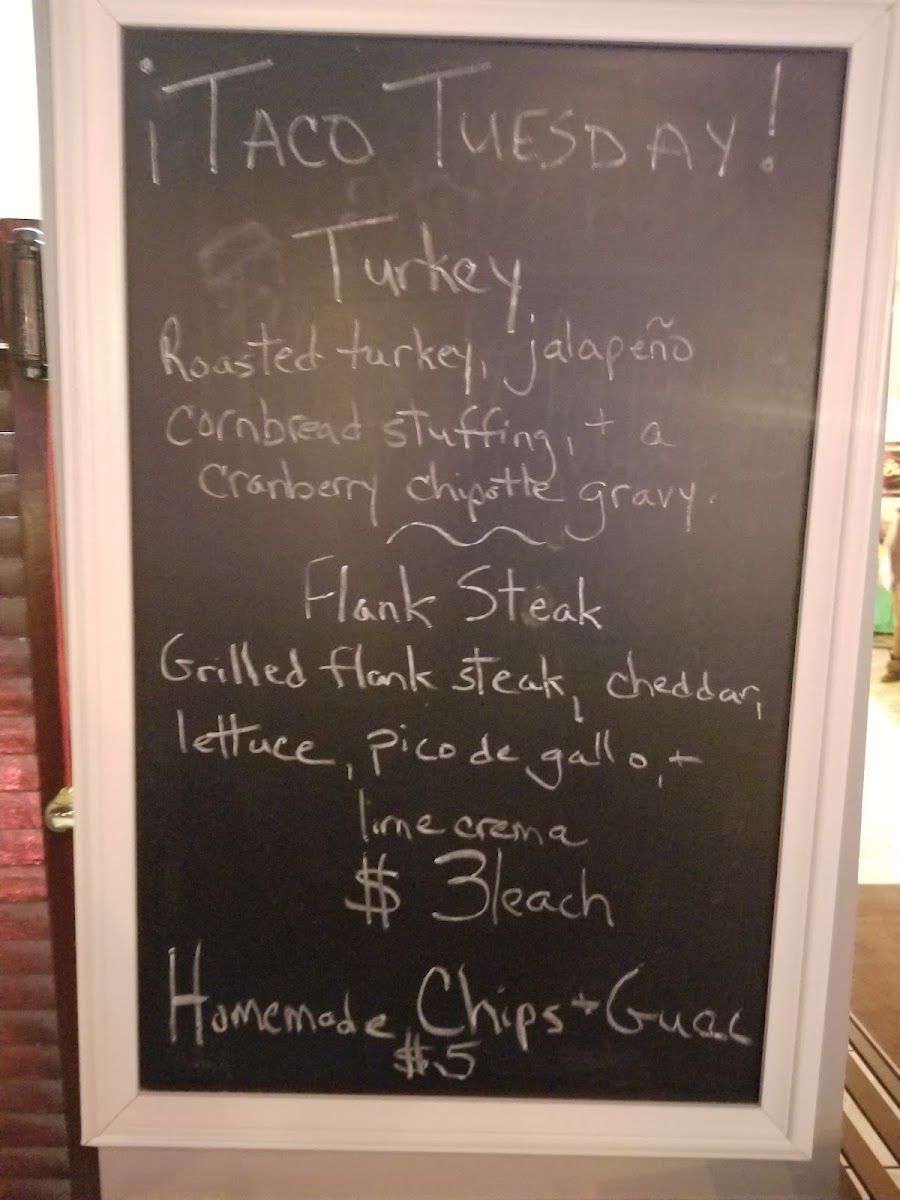 ¡TACO TUESDAY!
Turkey
Roasted turkey, jalapeño
cornbread stuffing, + a
cranberry chipotle gravy.
Flank Steak
Grilled flank steak, cheddar,
lettuce, pico de gallo, +
lime crema
$3/each
Homemade Chips + Guac
$5